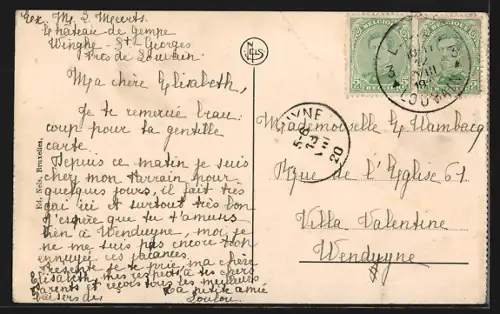 Ex. Mr. L. Meurts.
Château de Gempe
Winghe-St-Georges
Près de Louvain
Ma chère Elisabeth,
Je te remercie beau-
coup pour ta gentille
carte.
Depuis ce matin je suis
chez mon parrain pour
quelques jours, il fait très
gai ici et surtout très bon
J'espère que tu t'amuses
bien à Wenduyne, moi, je
ne me suis pas encore
ennuyée ces vacances.
Présente je te prie, ma chère
Elisabeth, mes respects à tes chers
Parents et reçois tous les meilleurs
baisers de
Ta petite amie
Loulou.
Ed. Nels, Bruxelles.
NELS
UYNE
5-6
13
VIII
20
Mademoiselle E Wambacq
Rue de l'Eglise 61
Villa Valentine
Wenduyne